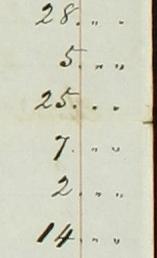 28. " "
5. " "
25. " "
7. " "
2. " "
14. " "